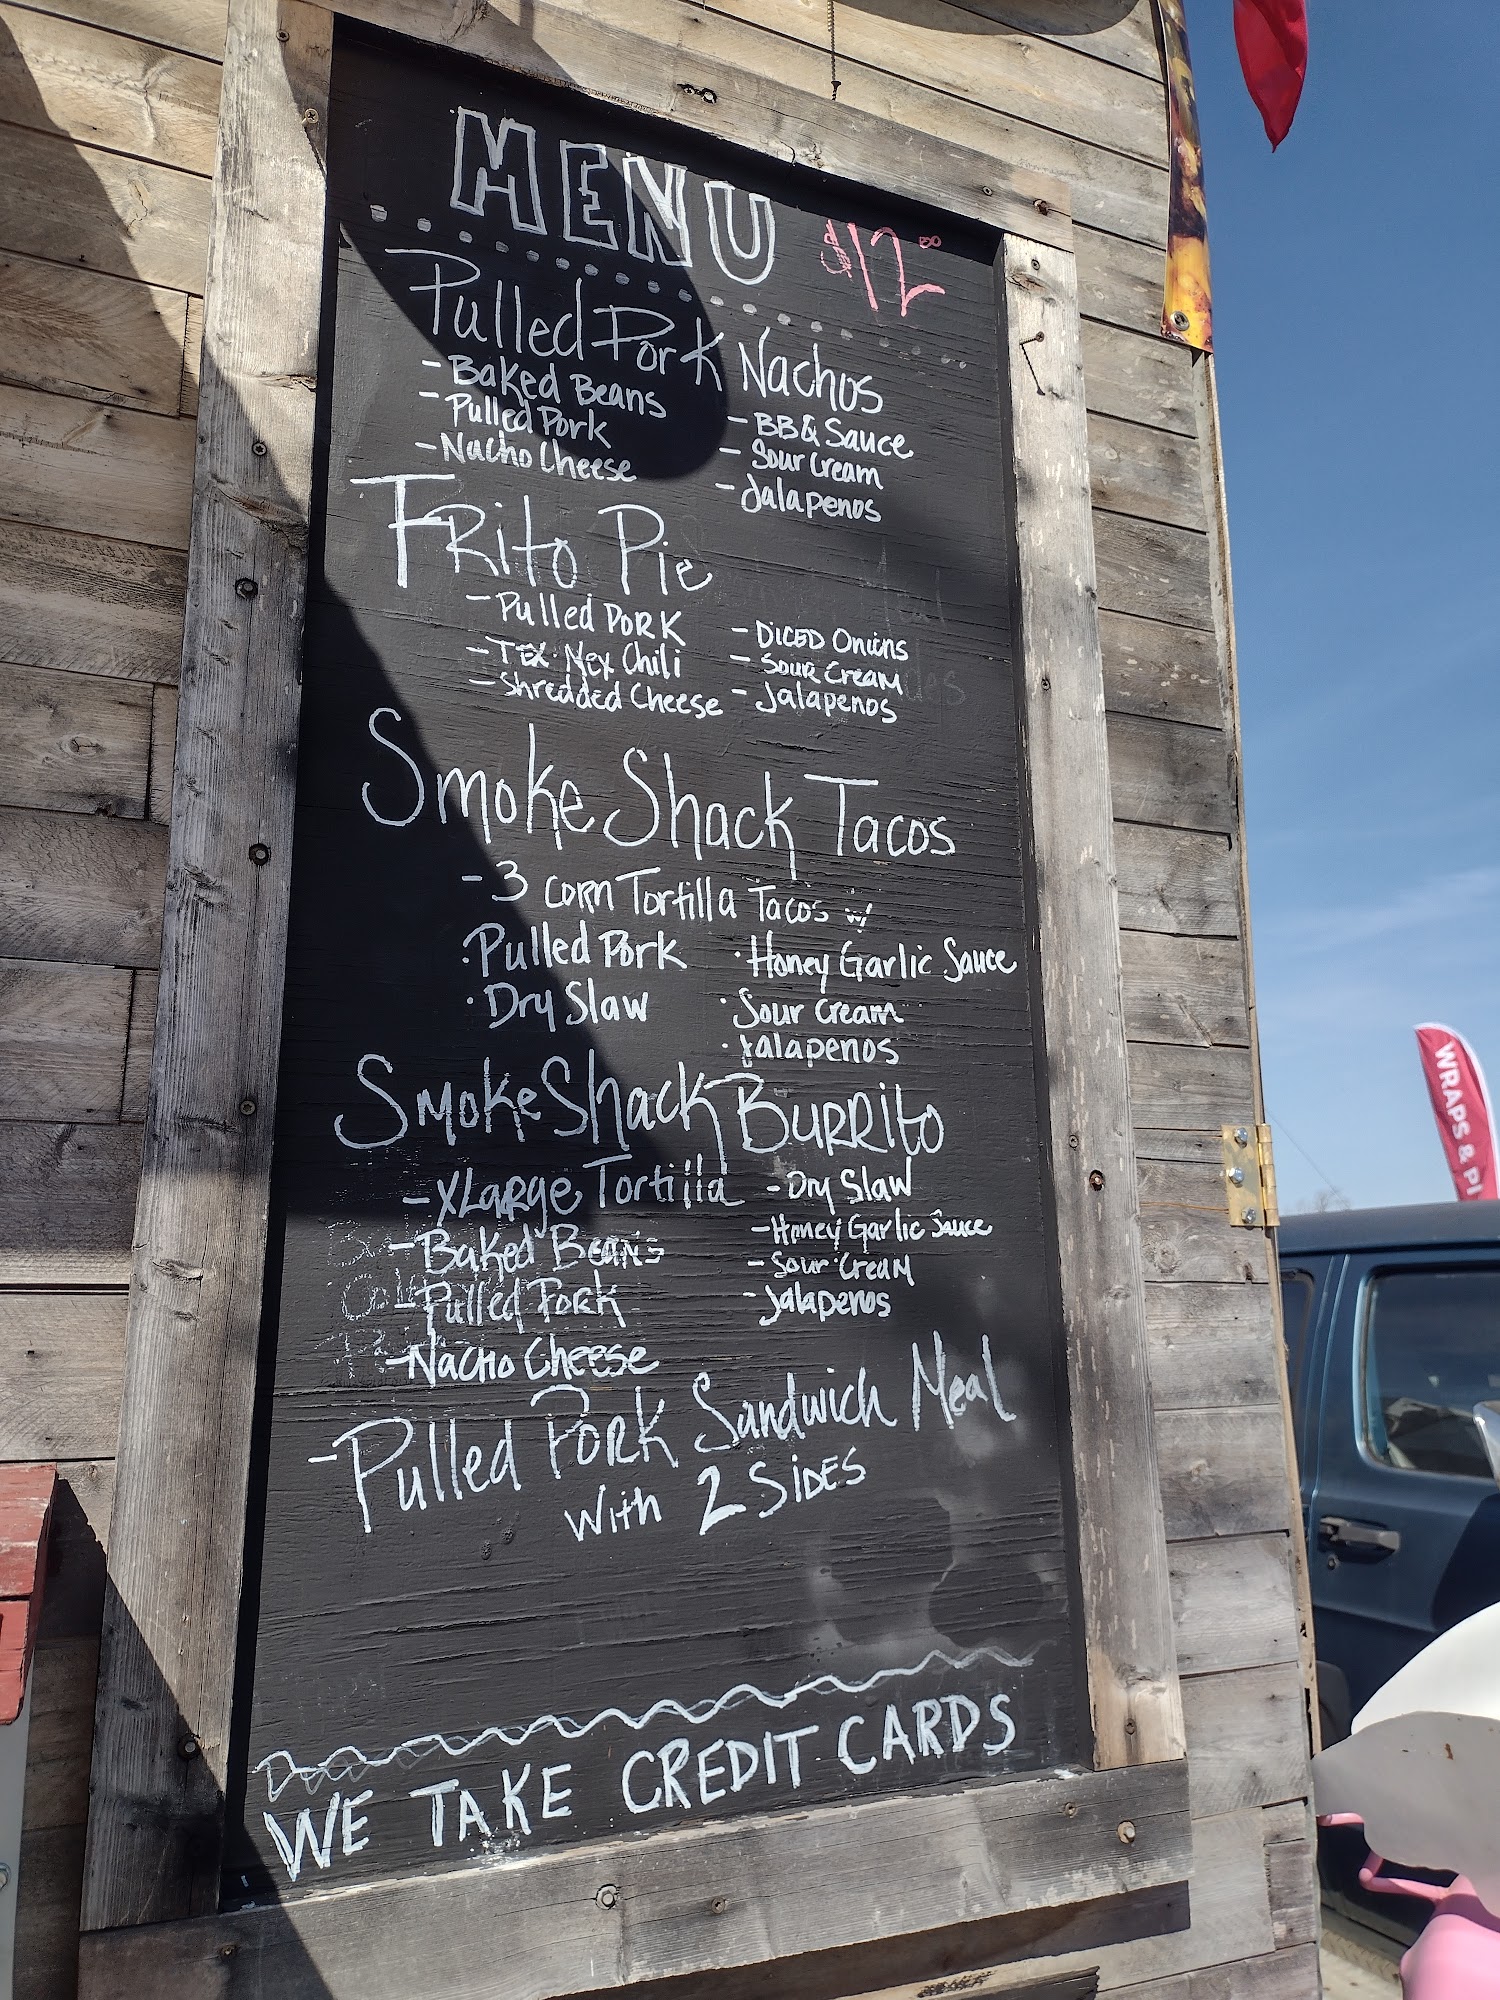 MENU $12.00
Pulled Pork Nachos
- Baked Beans
- Pulled Pork
- Nacho Cheese
- BB& Sauce
- Sour Cream
- Jalapenos
FRito Pie
- Pulled PORK
- TEX Mex Chili
- Shredded Cheese
- DICED Onions
- Sour Cream
- Jalapenos
Smoke Shack Tacos
- 3 CORN Tortilla Tacos w/
· Pulled Pork
· Dry Slaw
· Honey Garlic Sauce
· Sour Cream
· Jalapenos
Smoke Shack BURRito
- XLarge Tortilla
- Baked BEANS
- Pulled Pork
- Nacho Cheese
- Dry Slaw
- Honey Garlic Sauce
- Sour Cream
- Jalapenos
- Pulled PORK Sandwich Meal
With 2 SIDES
WE TAKE CREDIT CARDS
WRAPS & PI